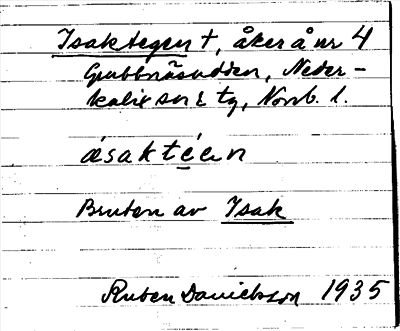 Isaktegen †, åker å nr 4
Grubbnäsudden, Neder-
kalix sn & tg, Norrb. l.
isaktéɛn
Bruten av Isak
Ruben Danielsson 1935